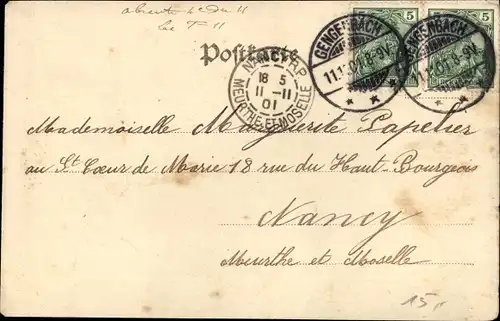 Postkarte
5
5
GENGENBACH
11.11.01.8-9V.
GENGENBACH
11.11.01.8-9V.
NANCY R.P.
18 5
11 -11
01
MEURTHE-ET-MOSELLE
Mademoiselle Marguerite Papelier
au St Cœur de Marie 18 rue du Haut-Bourgeois
Nancy
Meurthe et Moselle
15,-